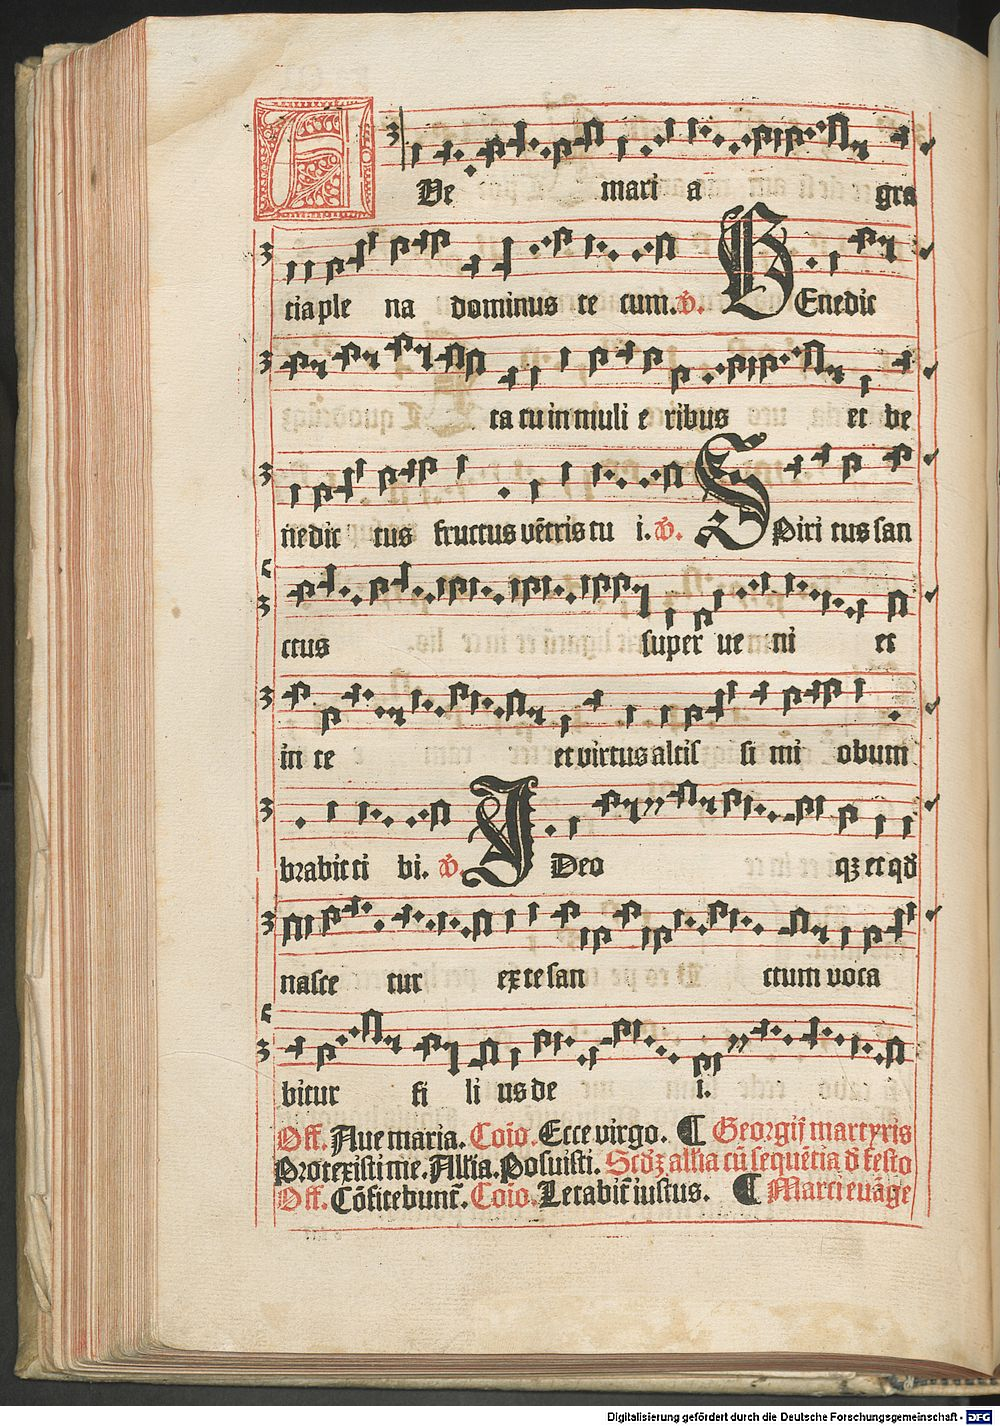 AVe mari a gra
tiaple na dominus te cum. V̄. BEnedic
ta tu in muli e ribus et be
nedic tus fructus vētris tu i. V̄. SPiri tus san
ctus super ue ni et
in te et virtus altis si mi obum
brabit ti bi. V̄. IDeo qꝫ et qd̄
nasce tur ex te san ctum voca
bitur fi li us de i.
Off. Aue maria. Coīo. Ecce virgo. ¶ Georgij martyris
Protexisti me. All'ia. Posuisti. Scd'ꝫ all'ia cū sequētia d̄ festo
Off. Cōfitebunt̄. Coīo. Letabit̄ iustus. ¶ Marci euāge
Digitalisierung gefördert durch die Deutsche Forschungsgemeinschaft - DFG